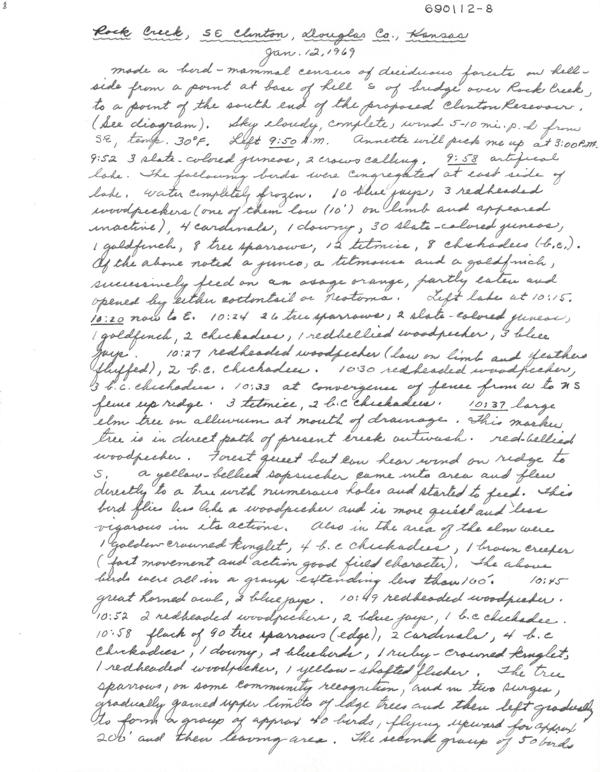 690112-8
Rock Creek, SE Clinton, Douglas Co., Kansas
Jan. 12, 1969
made a bird-mammal census of deciduous forests on hill-
side from a point at base of hill S of bridge over Rock Creek,
to a point of the south end of the proposed Clinton Reservoir.
(See diagram). Sky cloudy, complete, wind 5-10 mi. p. h from
SE, temp. 30°F. Left 9:50 A.M. Annette will pick me up at 3:00 P.M.
9:52 3 slate-colored juncos, 2 crows calling. 9:58 artificial
lake. The following birds were congregated at east side of
lake. Water completely frozen. 10 blue jays, 3 redheaded
woodpeckers (one of them low (10') on limb and appeared
inactive), 4 cardinals, 1 downy, 30 slate-colored juncos,
1 goldfinch, 8 tree sparrows, 12 titmice, 8 chickadees (b.c.).
Of the above noted a junco, a titmouse and a goldfinch,
successively feed on an osage orange, partly eaten and
opened by either cottontail or Neotoma. Left lake at 10:15.
10:20 now to E. 10:24 26 tree sparrows, 2 slate-colored juncos,
1 goldfinch, 2 chickadees, 1 redbellied woodpecker, 3 blue
jays. 10:27 redheaded woodpecker (low on limb and feathers
fluffed), 2 b.c. chickadees. 10:30 redheaded woodpecker,
3 b.c. chickadees. 10:33 at convergence of fence from W to NS
fence up ridge. 3 titmice, 2 b.c chickadees. 10:37 large
elm tree on alluvium at mouth of drainage. This marker
tree is in direct path of present creek outwash. red-bellied
woodpecker. Forest quiet but can hear wind on ridge to
S. a yellow-bellied sapsucker came into area and flew
directly to a tree with numerous holes and started to feed. This
bird flies less like a woodpecker and is more quiet and less
vigorous in its actions. Also in the area of the elm were
1 golden-crowned kinglet, 4 b.c chickadees, 1 brown creeper
(fast movement and action good field character). The above
birds were all in a group extending less than 100'. 10:45
great horned owl, 2 blue jays. 10:49 redheaded woodpecker.
10:52 2 redheaded woodpeckers, 2 blue jays, 1 b.c chickadee.
10:58 flock of 90 tree sparrows (edge), 2 cardinals, 4 b.c
chickadees, 1 downy, 2 bluebirds, 1 ruby-crowned kinglet,
1 redheaded woodpecker, 1 yellow-shafted flicker. The tree
sparrows, on some community recognition, and in two surges,
gradually gained upper limits of edge trees and then left gradually
to form a group of approx 40 birds, flying upward for approx
200' and then leaving area. The second group of 50 birds